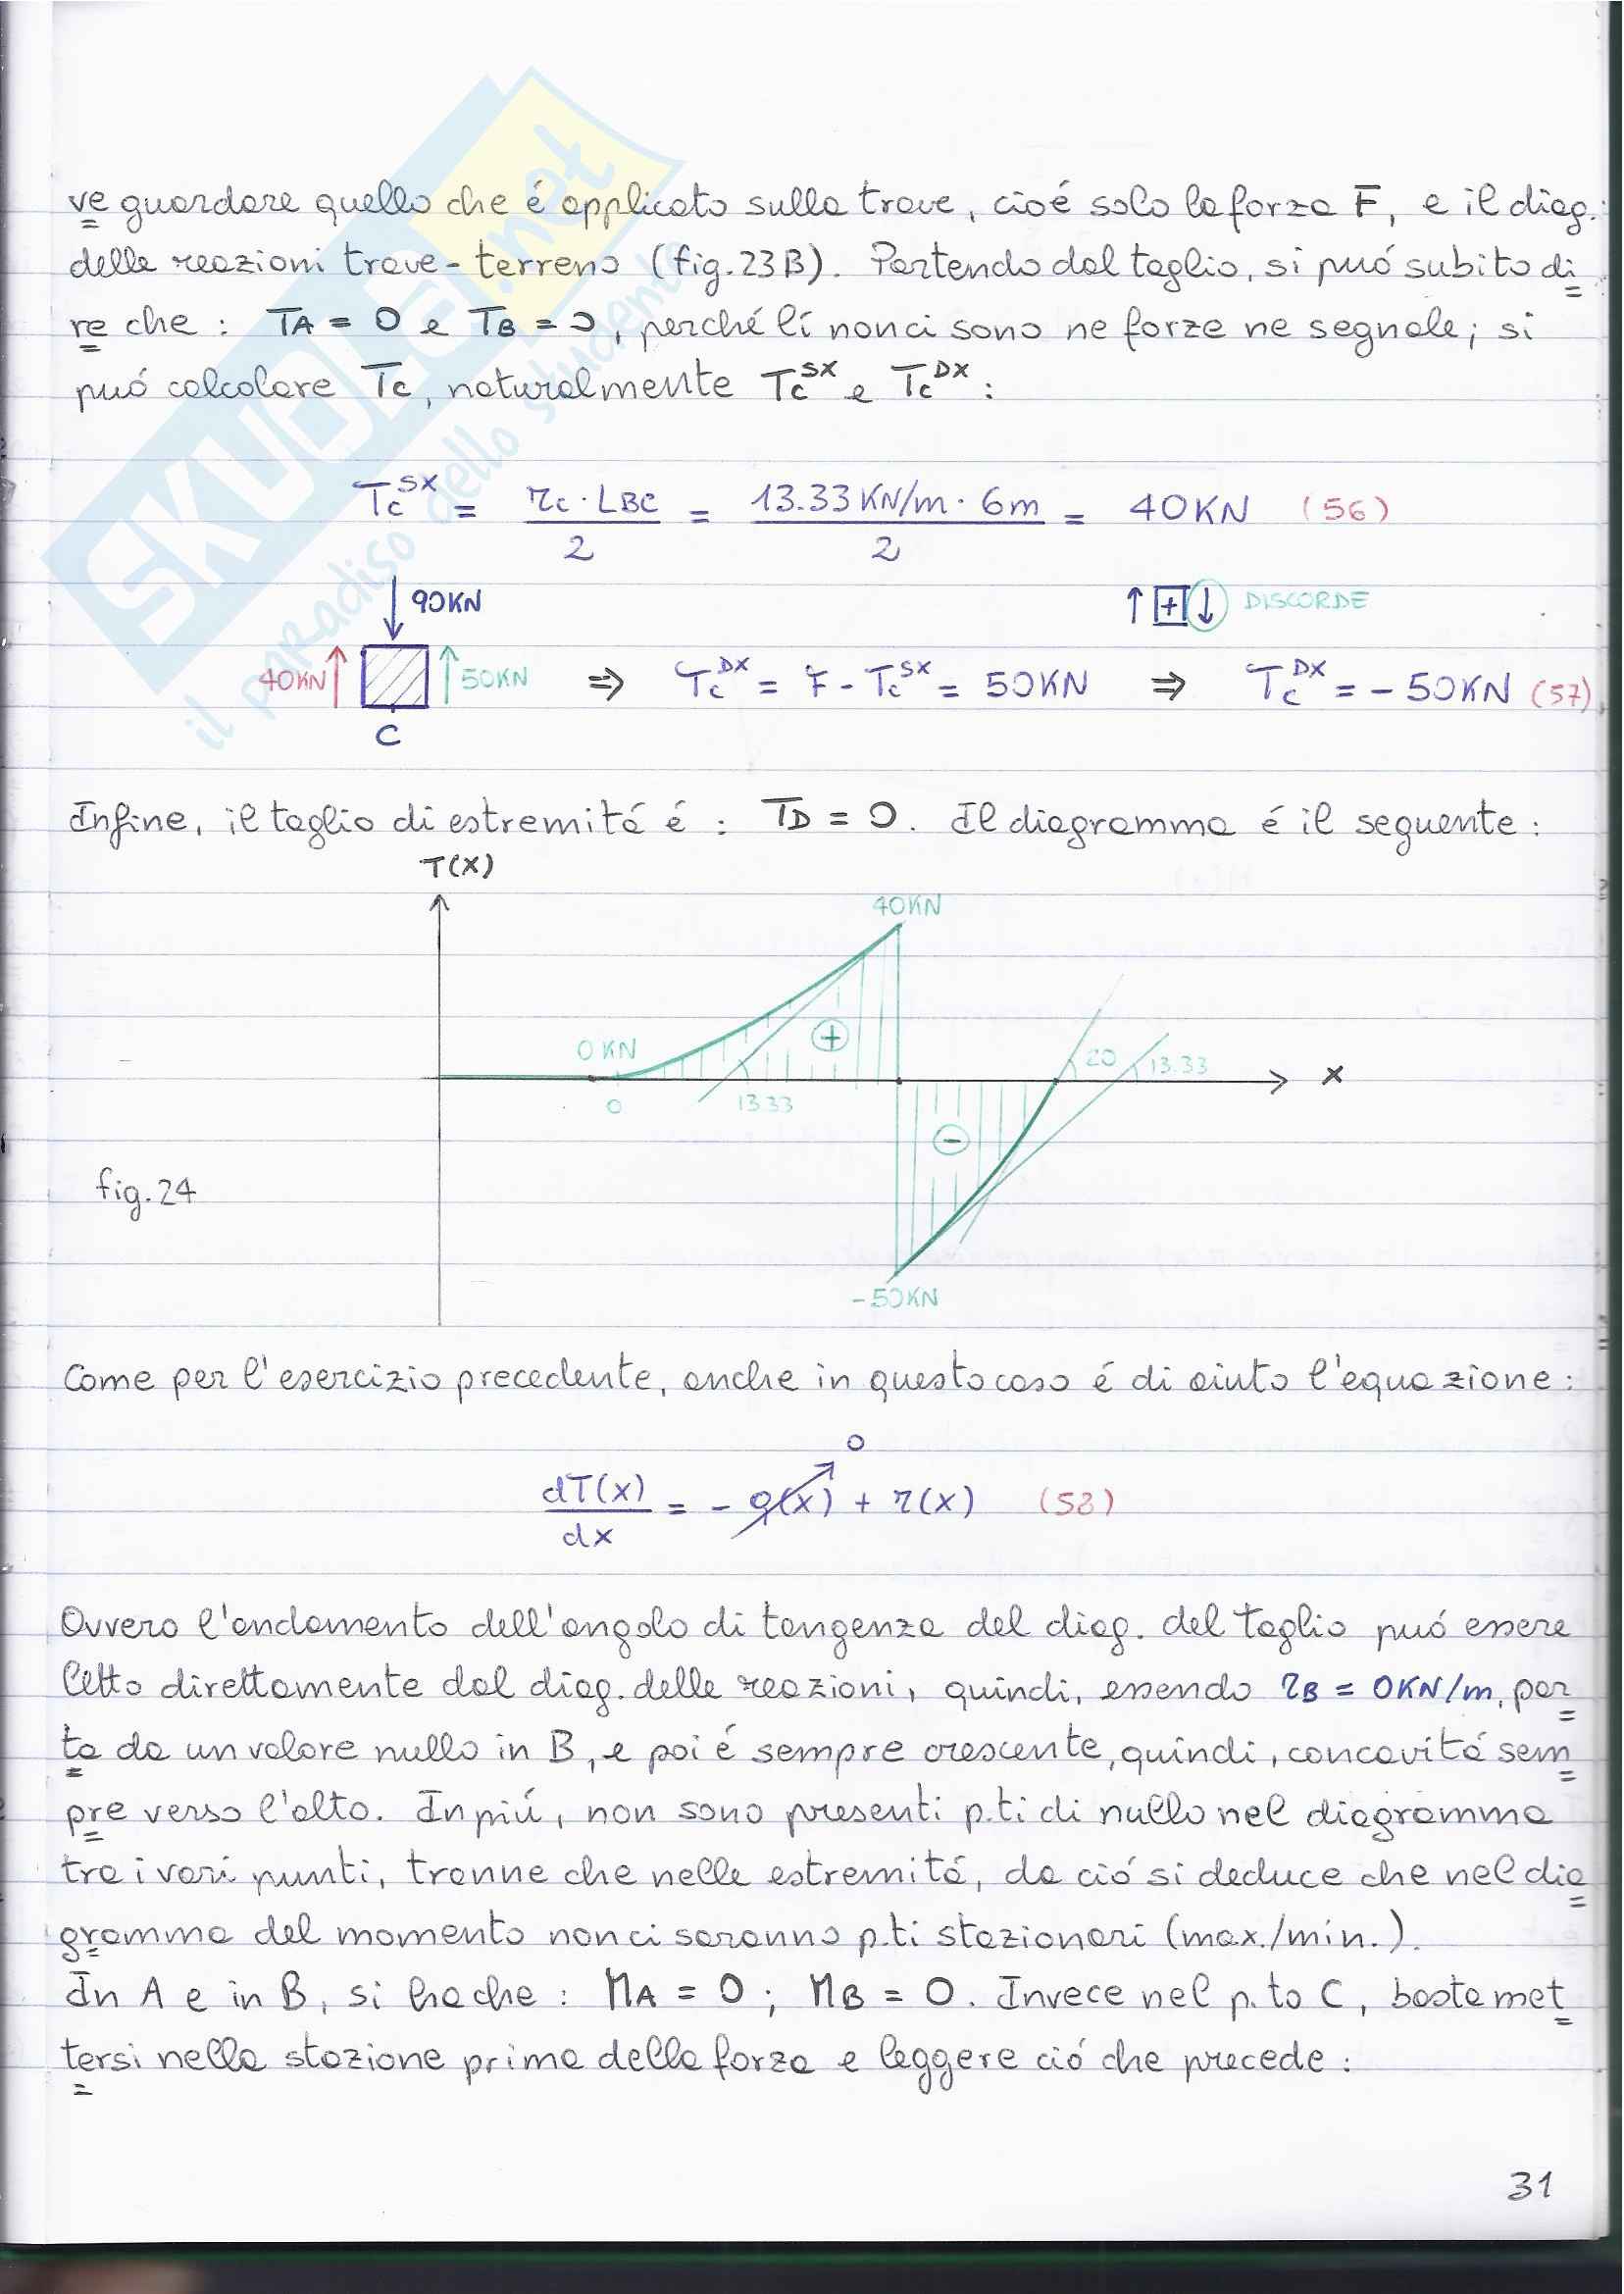 ve guardare quello che é applicato sulla trave, cioé solo la forza F, e il diag.
delle reazioni trave-terreno (fig.23B). Partendo dal taglio, si puó subito di
re che : TA = 0 e TB = 0, perché lí non ci sono ne forze ne segnale; si
puó calcolare Tc, naturalmente Tc^SX e Tc^DX :
Tc^SX = rc · LBC / 2 = 13.33 KN/m · 6m / 2 = 40KN (56)
90KN
↑ + ↓ DISCORDE
40KN 50KN ⇒ Tc^DX = F - Tc^SX = 50KN ⇒ Tc^DX = - 50KN (57)
C
Infine, il taglio di estremitá é : TD = 0. Il diagramma é il seguente :
T(X)
40KN
+
0KN
20
13.33
x
0
13.33
-
fig.24
-50KN
Come per l'esercizio precedente, anche in questo caso é di aiuto l'equazione :
0
dT(x)/dx = - q(x) + r(x) (58)
Ovvero l'andamento dell'angolo di tangenza del diag. del taglio puó essere
letto direttamente dal diag. delle reazioni, quindi, essendo rB = 0KN/m, par
te da un valore nullo in B, e poi é sempre crescente, quindi, concavitá sem
pre verso l'alto. In piú, non sono presenti p.ti di nullo nel diagramma
tra i vari punti, tranne che nelle estremitá, da ció si deduce che nel dia
gramma del momento non ci saranno p.ti stazionari (max./min.).
In A e in B, si ha che : MA = 0 ; MB = 0. Invece nel p.to C, basta met
tersi nella stazione prima della forza e leggere ció che precede :
31
SKUOLA.net
il paradiso dello studente